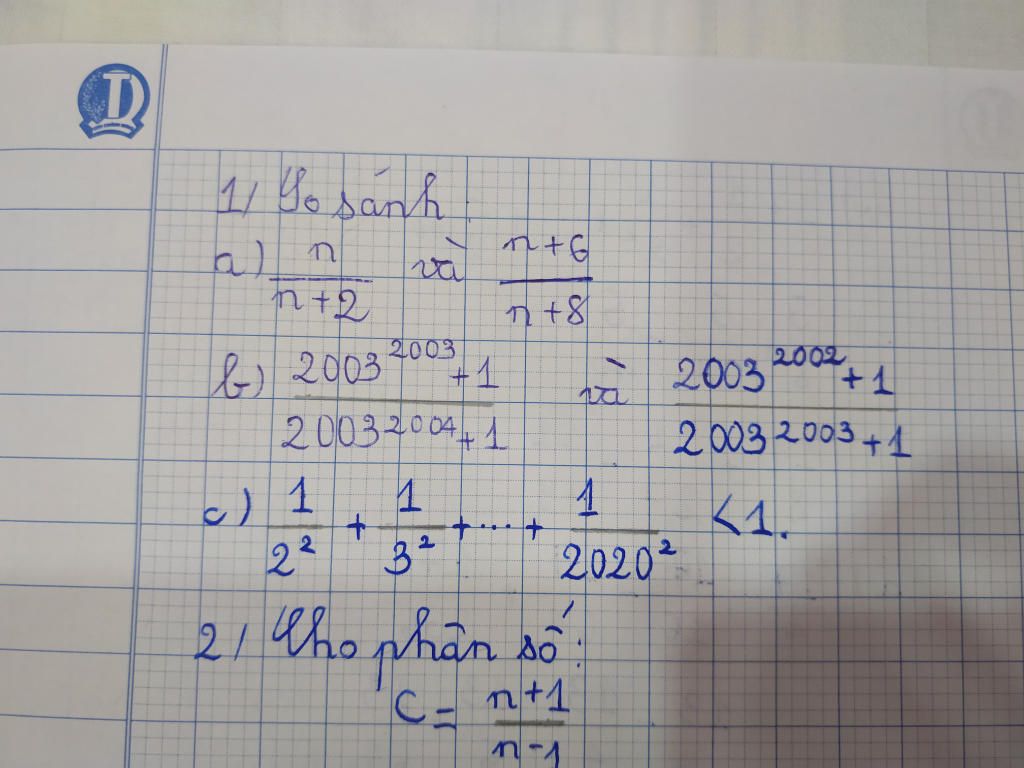 1/ So sánh
a) n/(n+2) và (n+6)/(n+8)
b) (2003^2003+1)/(2003^2004+1) và (2003^2002+1)/(2003^2003+1)
c) 1/2² + 1/3² + ... + 1/2020² < 1.
2/ Cho phân số:
C = (n+1)/(n-1)